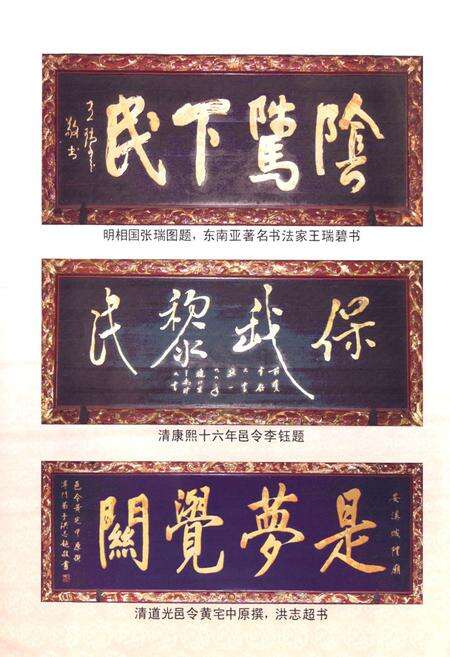 陰騭下民
王瑞璧
敬书
明相国张瑞图题，东南亚著名书法家王瑞碧书
保我黎民
清康熙十六年邑令李钰题
安溪城隍廟
是夢覺關
邑令黄宅中原撰
弟子洪志超敬書
清道光邑令黄宅中原撰，洪志超书